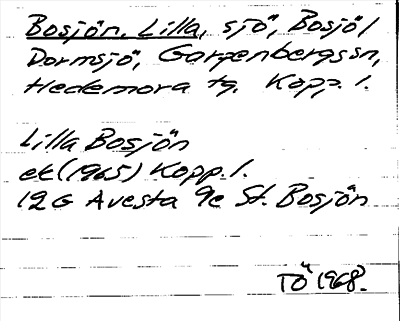 Bosjön, Lilla, sjö, Bosjö/
Dormsjö, Garpenbergs sn,
Hedemora tg. Kopp. l.
Lilla Bosjön
ek (1965) Kopp. l.
12G Avesta 9e St. Bosjön
TÖ 1968.